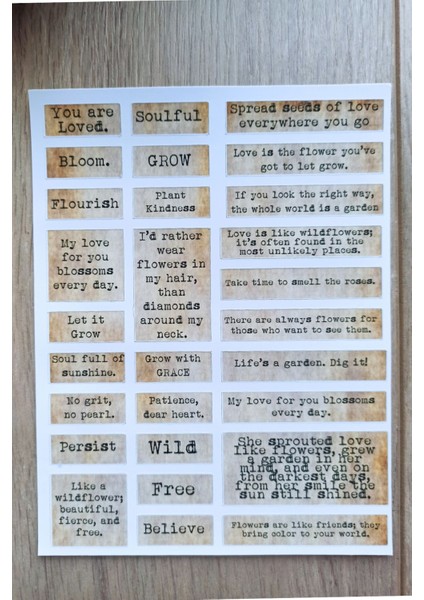 You are
Loved.
Bloom.
Flourish
My love
for you
blossoms
every day.
Let it
Grow
Soul full of
sunshine.
No grit,
no pearl.
Persist
Like a
wildflower;
beautiful,
fierce, and
free.
Soulful
GROW
Plant
Kindness
I'd rather
wear
flowers in
my hair,
than
diamonds
around my
neck.
Grow with
GRACE
Patience,
dear heart.
Wild
Free
Believe
Spread seeds of love
everywhere you go
Love is the flower you've
got to let grow.
If you look the right way,
the whole world is a garden
Love is like wildflowers;
it's often found in the
most unlikely places.
Take time to smell the roses.
There are always flowers for
those who want to see them.
Life's a garden. Dig it!
My love for you blossoms
every day.
She sprouted love
like flowers, grew
a garden in her
mind, and even on
the darkest days,
from her smile the
sun still shined.
Flowers are like friends; they
bring color to your world.